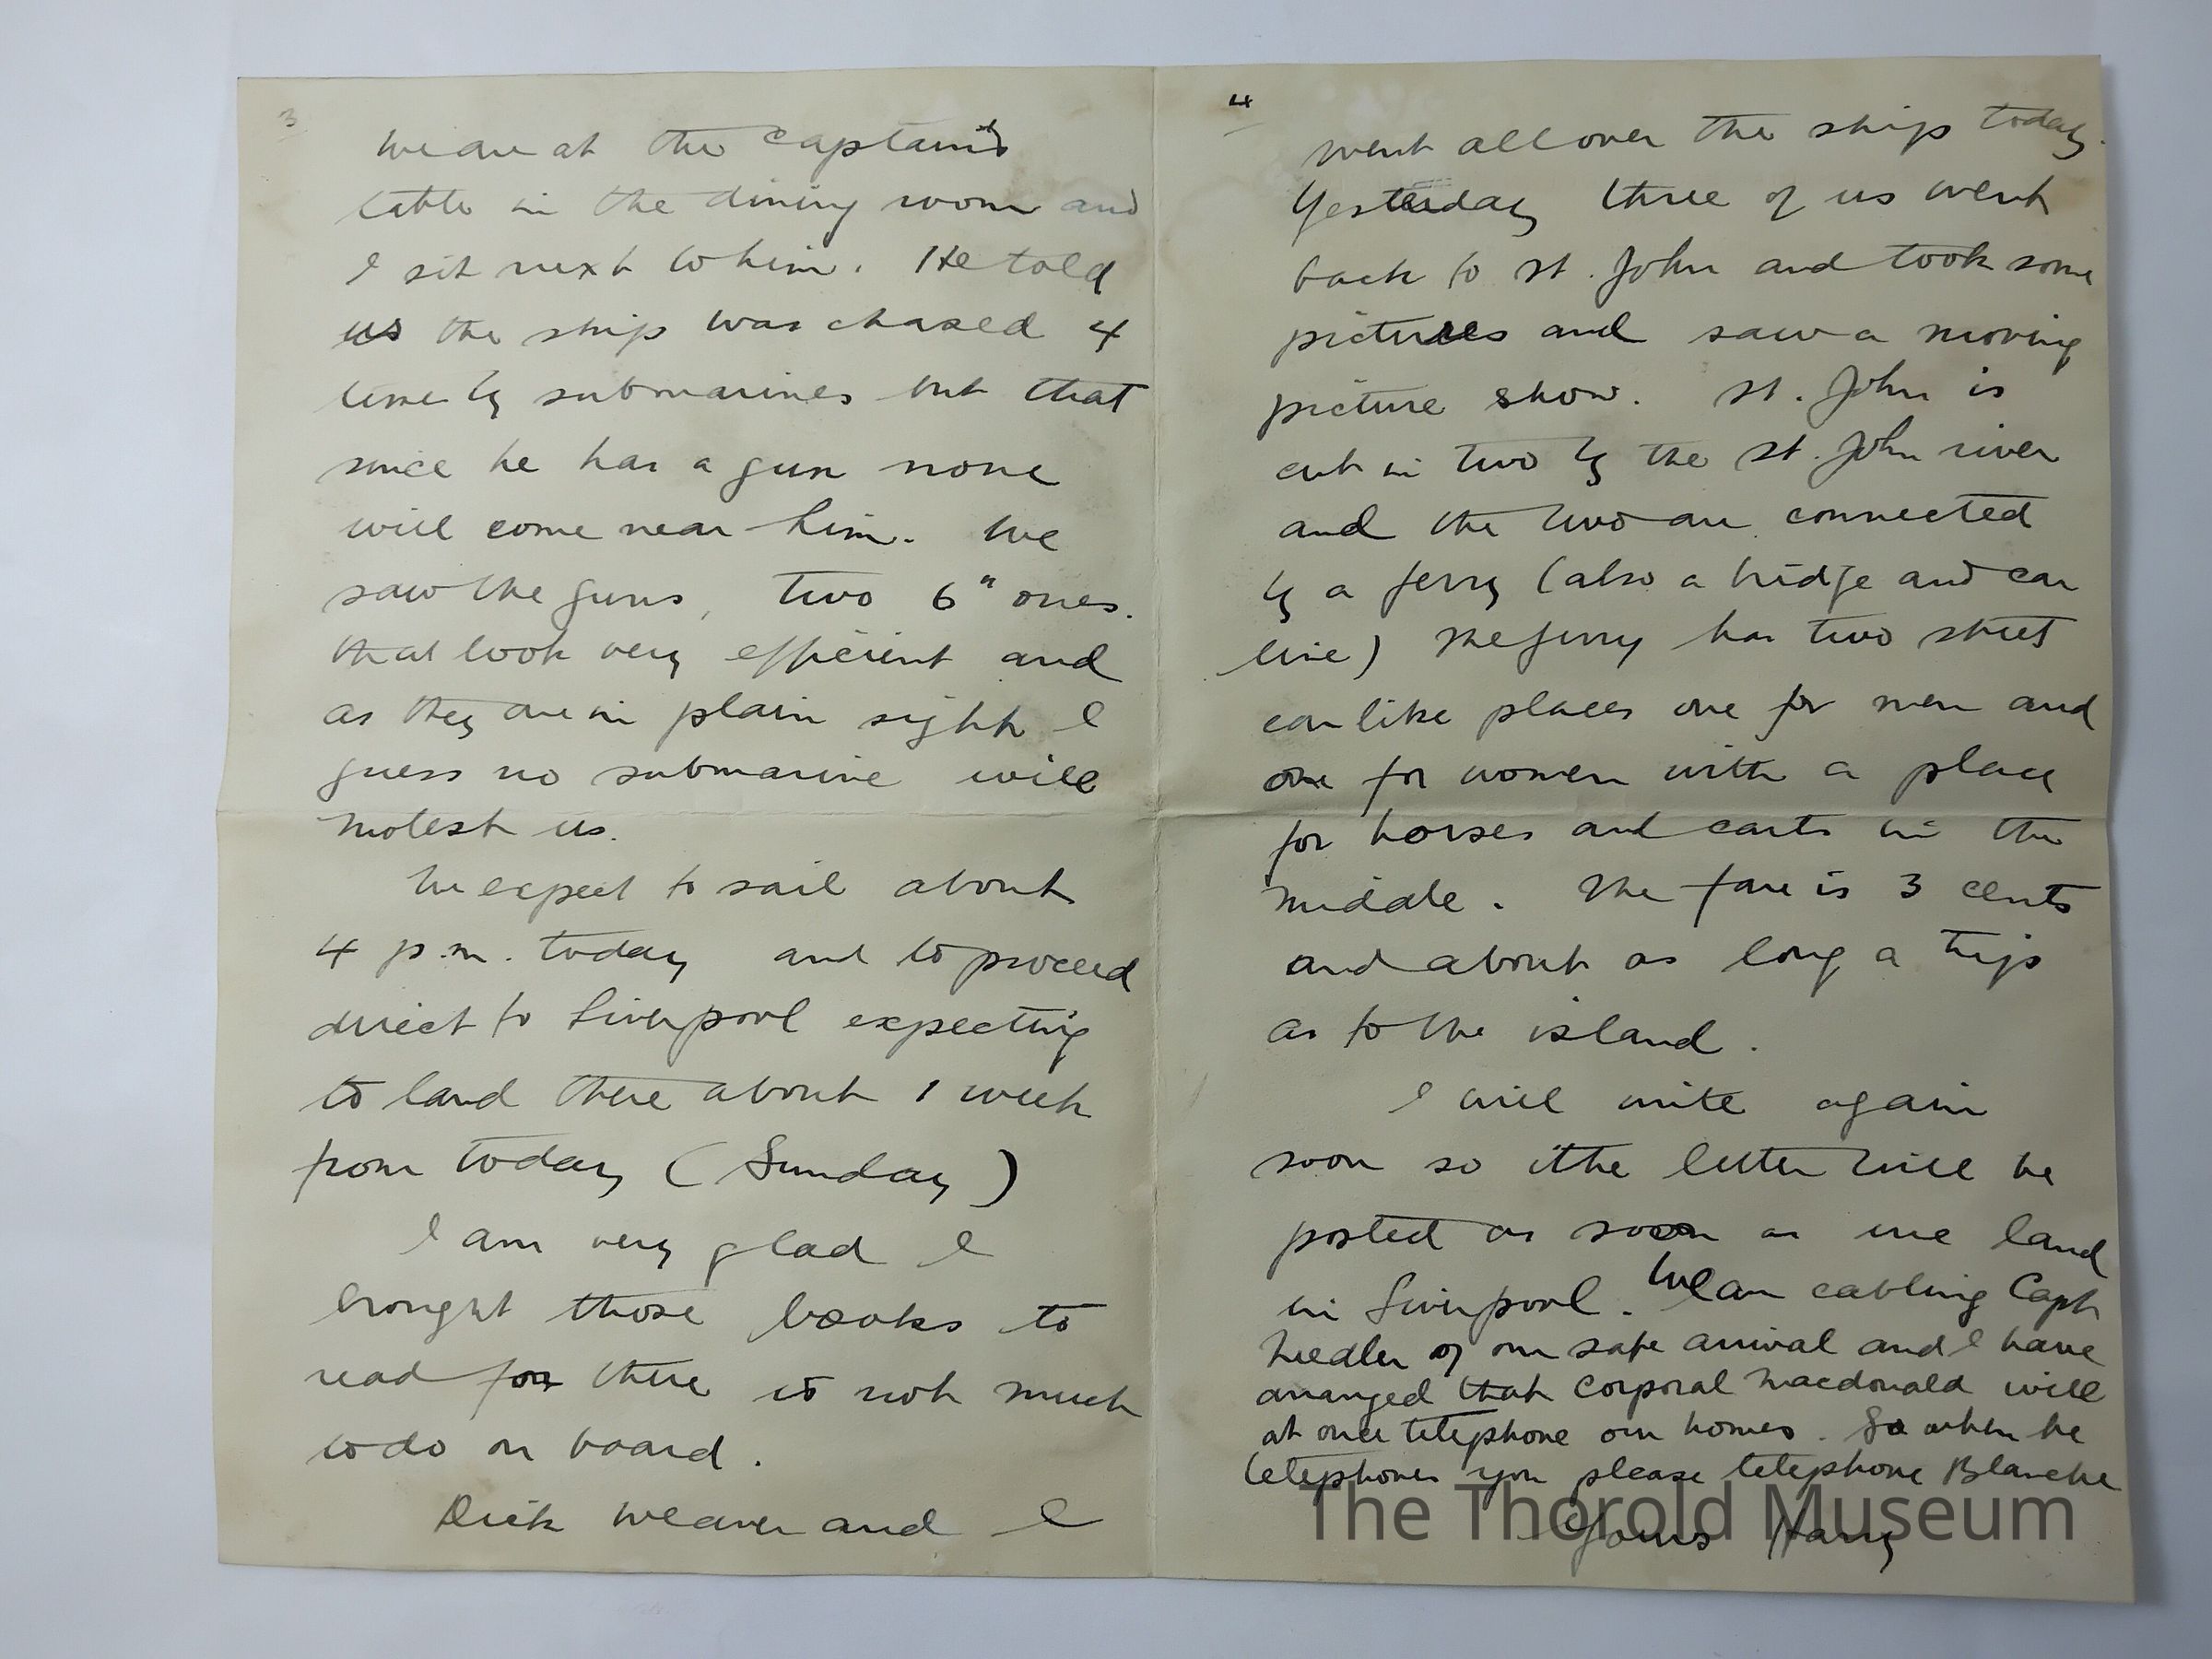 3
we are at the Captain's
table in the dining room and
I sit next to him. He told
us the ship was chased 4
time by submarines but that
since he has a gun none
will come near him. We
saw the guns, two 6" ones.
that look very efficient and
as they are in plain sight I
guess no submarine will
molest us.
We expect to sail about
4 p.m. today and to proceed
direct to Liverpool expecting
to land there about 1 week
from today (Sunday)
I am very glad I
brought those books to
read for there is not much
to do on board.
Dick Weaver and I
4
went all over the ship today.
Yesterday three of us went
back to St. John and took some
pictures and saw a moving
picture show. St. John is
cut in two by the St. John river
and the two are connected
by a ferry (also a bridge and car
line) The ferry has two street
car like places one for men and
one for women with a place
for horses and carts in the
middle. The fare is 3 cents
and about as long a trip
as to the island.
I will write again
soon so the letter will be
posted as soon as we land
in Liverpool. We are cabling Capt
of our safe arrival and I have
arranged that Corporal Macdonald will
at once telephone our homes. So when he
telephones you please telephone Blanche
Yours Harry
The Thorold Museum